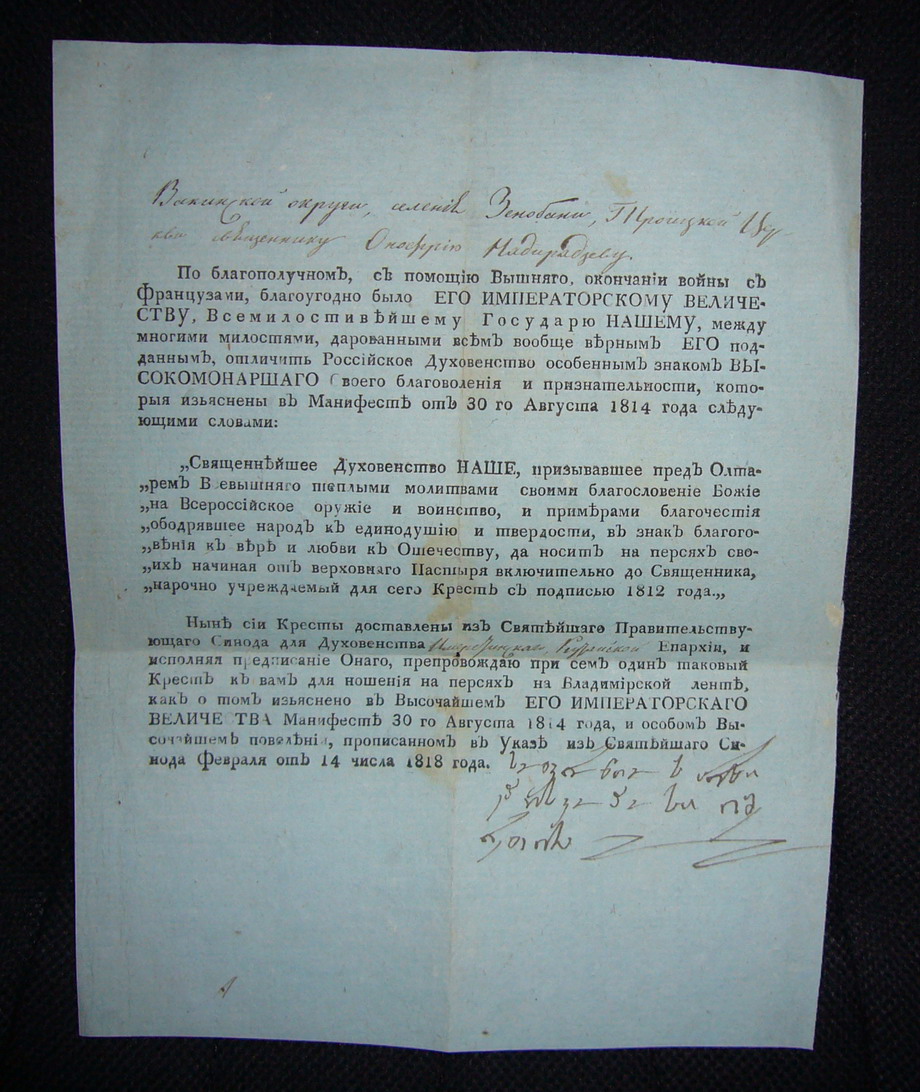 Вакинской округи, селенія Зенобани, Троицкой Цер-
кви священнику Онофрію Надирадзеву.
По благополучномъ, съ помощію Вышняго, окончаніи войны съ
Французами, благоугодно было ЕГО ИМПЕРАТОРСКОМУ ВЕЛИЧЕ-
СТВУ, Всемилостивѣйшему Государю НАШЕМУ, между
многими милостями, дарованными всѣмъ вообще вѣрнымъ ЕГО под-
даннымъ, отличить Россійское Духовенство особеннымъ знакомъ ВЫ-
СОКОМОНАРШАГО Своего благоволенія и признательности, кото-
рыя изьяснены въ Манифестѣ отъ 30 го Августа 1814 года слѣду-
ющими словами:
„Священнѣйшее Духовенство НАШЕ, призывавшее предъ Олта-
„ремъ Всевышняго теплыми молитвами своими благословеніе Божіе
„на Всероссійское оружіе и воинство, и примѣрами благочестія
„ободрявшее народъ къ единодушію и твердости, въ знак благого-
„вѣнія къ вѣрѣ и любви къ Отечеству, да носитъ на персяхъ сво-
„ихъ начиная отъ верховнаго Пастыря включительно до Священника,
„нарочно учреждаемый для сего Крестъ съ подписью 1812 года.„
Нынѣ сіи Кресты доставлены изъ Святѣйшаго Правительству-
ющаго Синода для Духовенства Епархіи, и
исполняя предписаніе Онаго, препровождаю при семъ одинъ таковый
Крестъ къ вамъ для ношенія на персяхъ на Владимірской лентѣ,
какъ о томъ изьяснено въ Высочайшемъ ЕГО ИМПЕРАТОРСКАГО
ВЕЛИЧЕСТВА Манифестѣ 30 го Августа 1814 года, и особомъ Вы-
сочайшемъ повелѣніи, прописанномъ въ Указѣ изъ Святѣйшаго Си-
нода Февраля отъ 14 числа 1818 года.